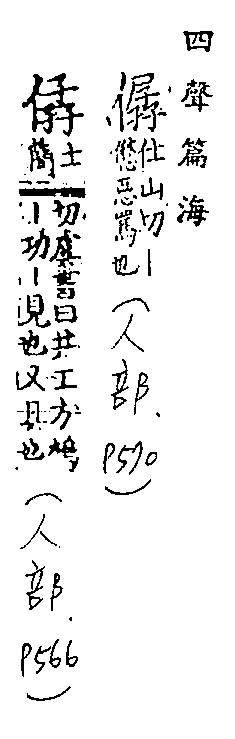 四聲篇海
僝仕山切丨僽惡罵也（人部．P570）
僝士簡切虞書曰共工方鳩丨功丨見也又具也（人部．P566）